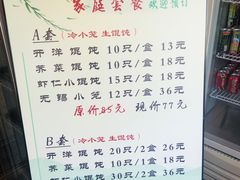 家庭套餐 欢迎预订
A套 (冷小笼 生馄饨)
开洋馄饨 10只/盒 13元
荠菜馄饨 10只/盒 13元
虾仁小馄饨 10只/盒 18元
无锡小笼 12只/盒 36元
原价85元 现价77元
B套 (冷小笼 生馄饨)
开洋馄饨 20只/2盒 26元
荠菜馄饨 20只/2盒 26元
虾仁小馄饨 30只/2盒 36元